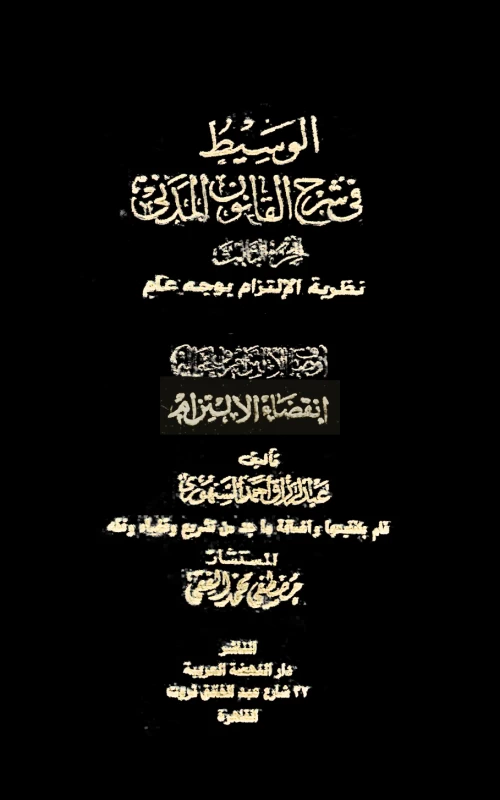 الوسيط
في شرح القانون المدني
الجزء الثالث
نظرية الالتزام بوجه عام
أوصاف الالتزام
انقضاء الالتزام
تأليف
عبد الرزاق أحمد السنهوري
قام بتنقيحها وإضافة ما جد من تشريع وقضاء وفقه
المستشار
مصطفى محمد الفقي
الناشر
دار النهضة العربية
٣٢ شارع عبد الخالق ثروت
القاهرة